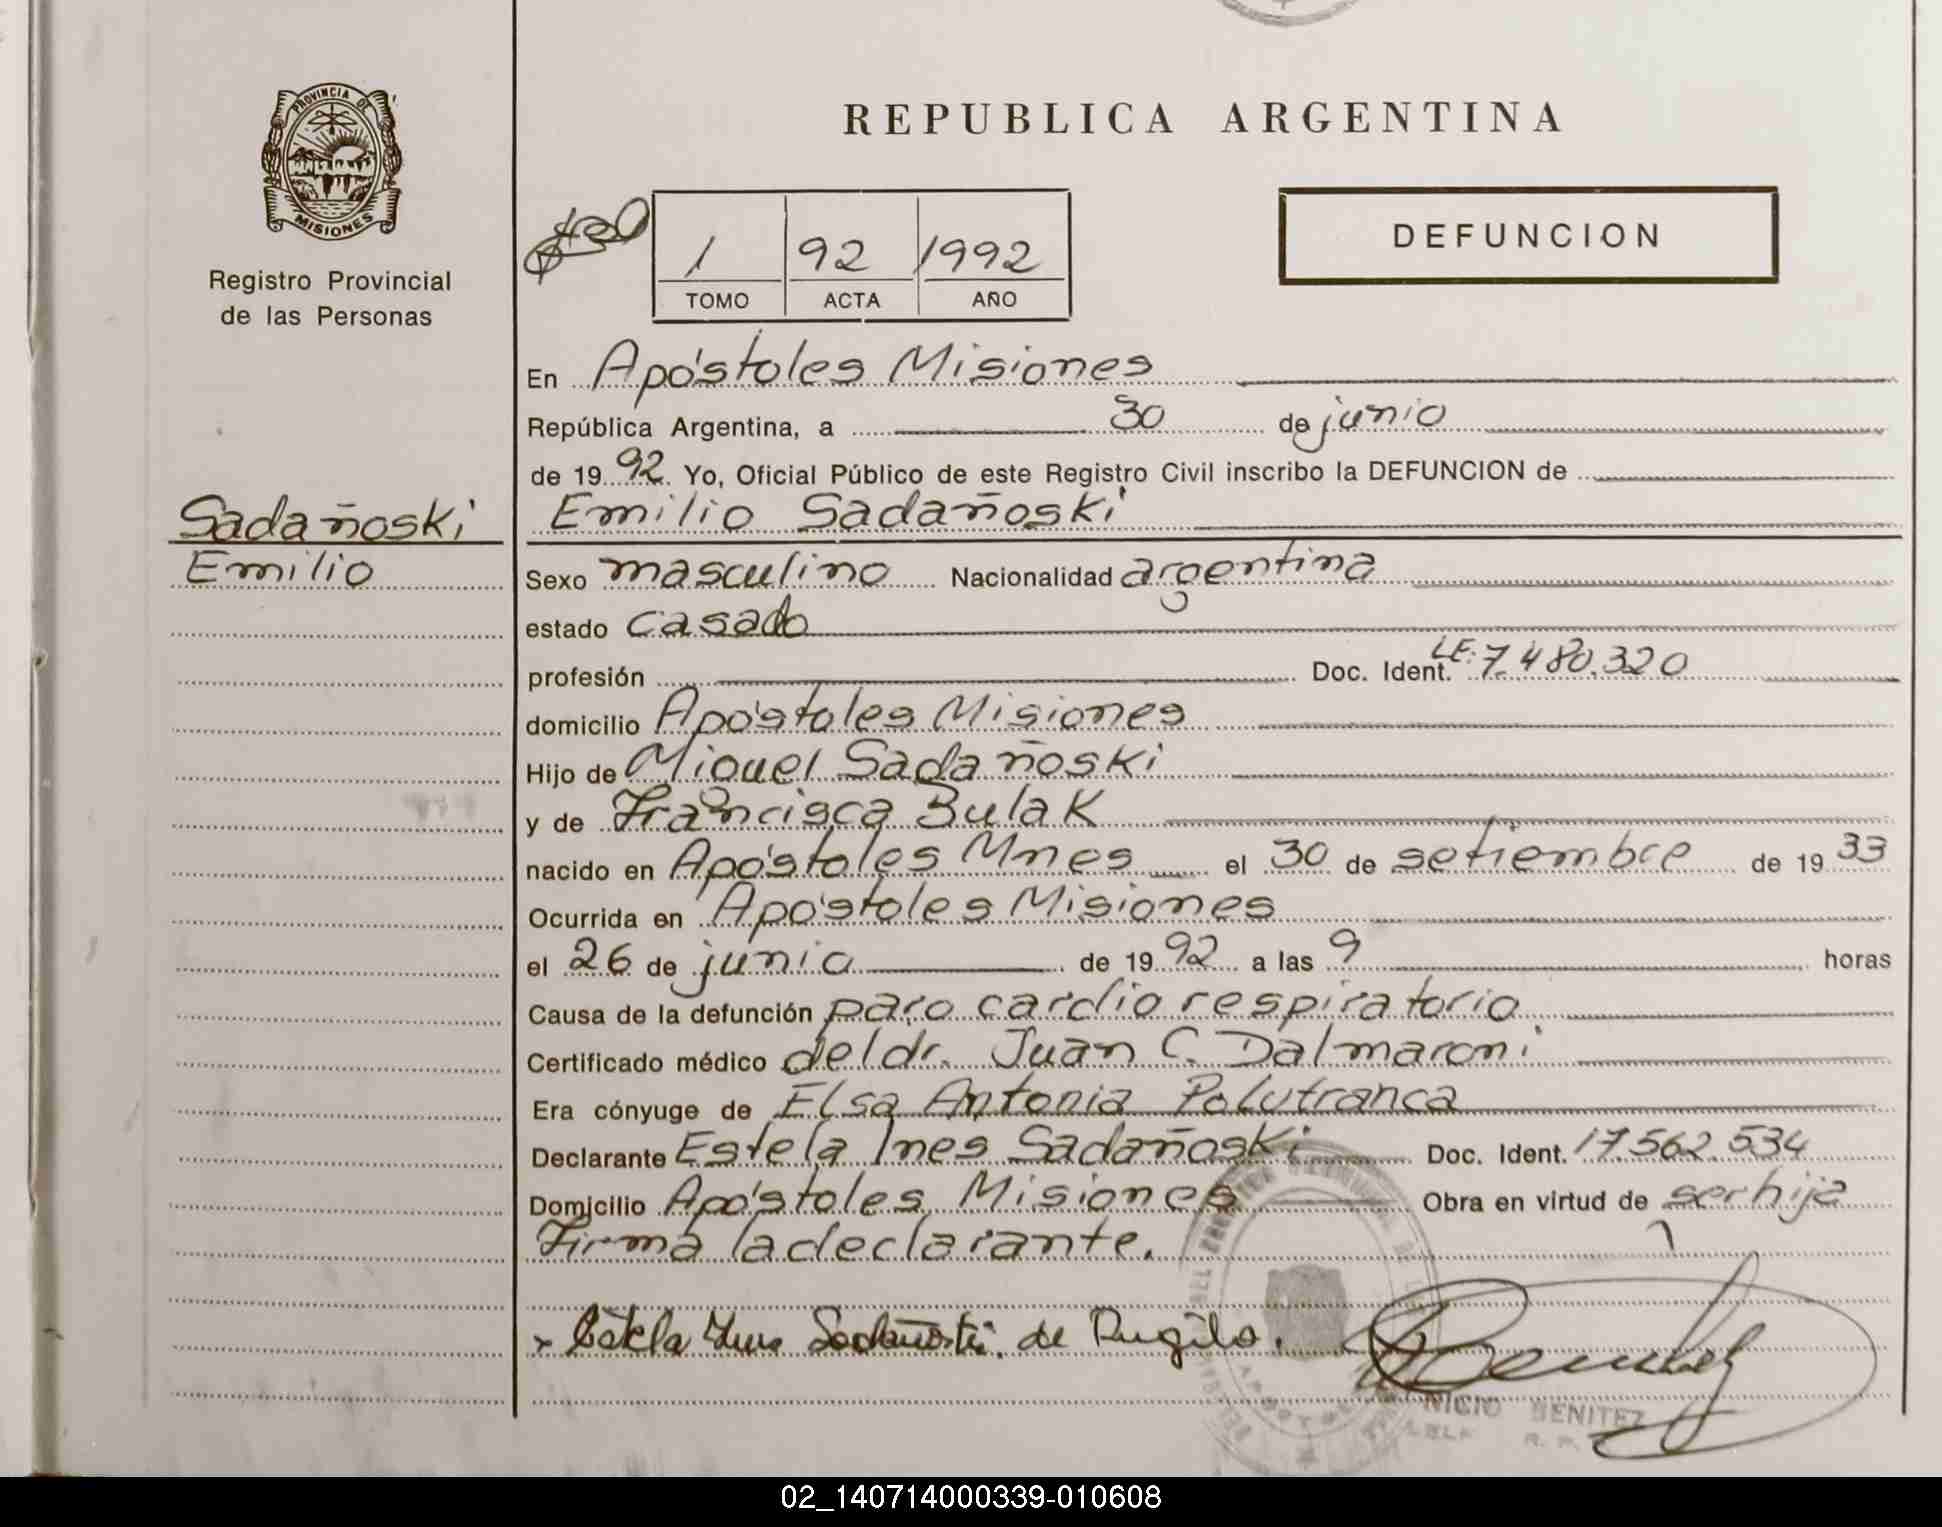 PROVINCIA DE
MISIONES
Registro Provincial
de las Personas
REPUBLICA ARGENTINA
DEFUNCION
1 92 1992
TOMO ACTA AÑO
En Apóstoles Misiones
República Argentina, a 30 de junio
de 19 92. Yo, Oficial Público de este Registro Civil inscribo la DEFUNCION de
Sadañoski
Emilio
Emilio Sadañoski
Sexo masculino Nacionalidad argentina
estado casado
profesión Doc. Ident. LE: 7.480.320
domicilio Apóstoles Misiones
Hijo de Miguel Sadañoski
y de Francisca Bulak
nacido en Apóstoles Mnes el 30 de setiembre de 19 33
Ocurrida en Apóstoles Misiones
el 26 de junio de 19 92 a las 9 horas
Causa de la defunción paro cardio respiratorio
Certificado médico del dr. Juan C. Dalmaroni
Era cónyuge de Elsa Antonia Polutranca
Declarante Estela Ines Sadañoski Doc. Ident. 17.562.534
Domicilio Apóstoles Misiones Obra en virtud de ser hija
Firma la declarante.
x Estela Ines Sadañoski de
NICIO BENITEZ
02_140714000339-010608